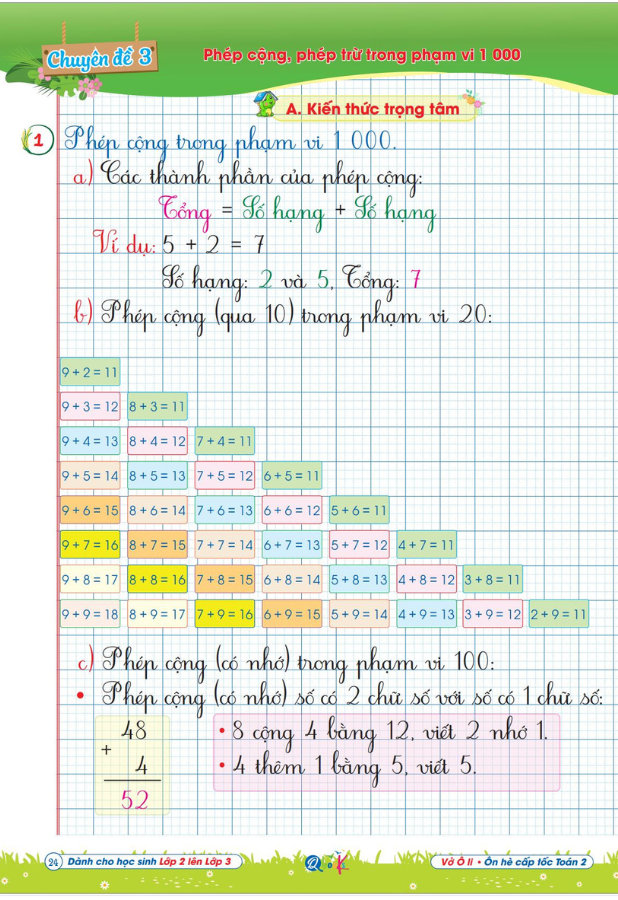 Chuyên đề 3
Phép cộng, phép trừ trong phạm vi 1 000
A. Kiến thức trọng tâm
1 Phép cộng trong phạm vi 1 000.
a) Các thành phần của phép cộng:
Tổng = Số hạng + Số hạng
Ví dụ: 5 + 2 = 7
Số hạng: 2 và 5, Tổng: 7
b) Phép cộng (qua 10) trong phạm vi 20:
9 + 2 = 11
9 + 3 = 12 8 + 3 = 11
9 + 4 = 13 8 + 4 = 12 7 + 4 = 11
9 + 5 = 14 8 + 5 = 13 7 + 5 = 12 6 + 5 = 11
9 + 6 = 15 8 + 6 = 14 7 + 6 = 13 6 + 6 = 12 5 + 6 = 11
9 + 7 = 16 8 + 7 = 15 7 + 7 = 14 6 + 7 = 13 5 + 7 = 12 4 + 7 = 11
9 + 8 = 17 8 + 8 = 16 7 + 8 = 15 6 + 8 = 14 5 + 8 = 13 4 + 8 = 12 3 + 8 = 11
9 + 9 = 18 8 + 9 = 17 7 + 9 = 16 6 + 9 = 15 5 + 9 = 14 4 + 9 = 13 3 + 9 = 12 2 + 9 = 11
c) Phép cộng (có nhớ) trong phạm vi 100:
• Phép cộng (có nhớ) số có 2 chữ số với số có 1 chữ số:
48
+
4
52
• 8 cộng 4 bằng 12, viết 2 nhớ 1.
• 4 thêm 1 bằng 5, viết 5.
24 Dành cho học sinh Lớp 2 lên Lớp 3
Vở Ô li • Ôn hè cấp tốc Toán 2